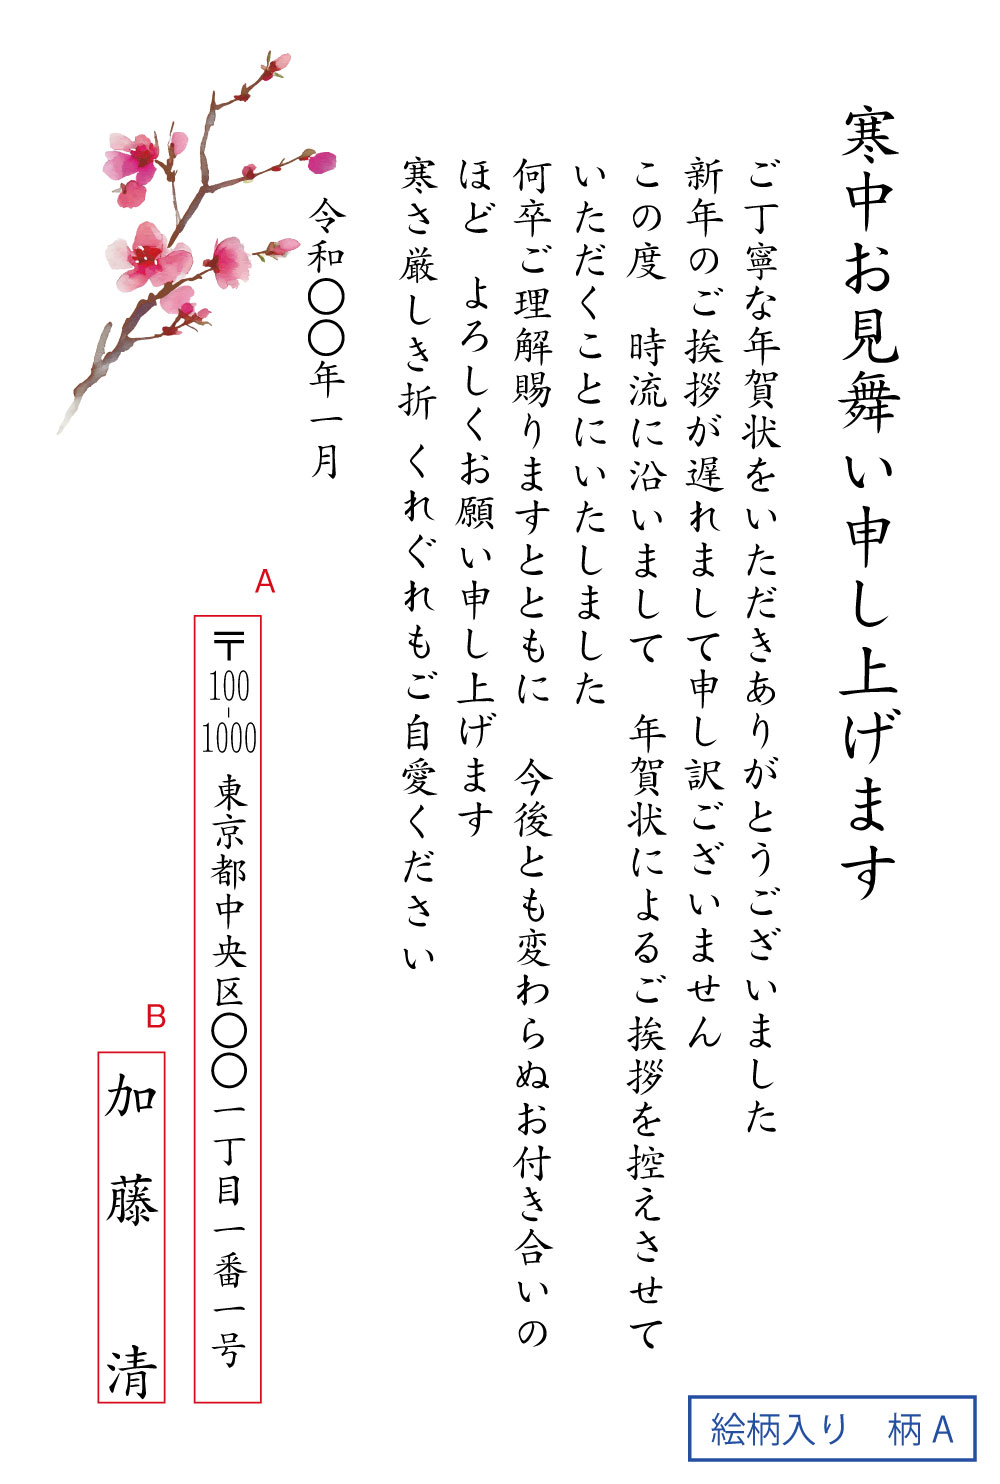 寒中お見舞い申し上げます
ご丁寧な年賀状をいただきありがとうございました
新年のご挨拶が遅れまして申し訳ございません
この度　時流に沿いまして　年賀状によるご挨拶を控えさせて
いただくことにいたしました
何卒ご理解賜りますとともに　今後とも変わらぬお付き合いの
ほど　よろしくお願い申し上げます
寒さ厳しき折 くれぐれもご自愛ください
令和〇〇年一月
A
〒100-1000 東京都中央区〇〇一丁目一番一号
B
加藤　清
絵柄入り　柄A